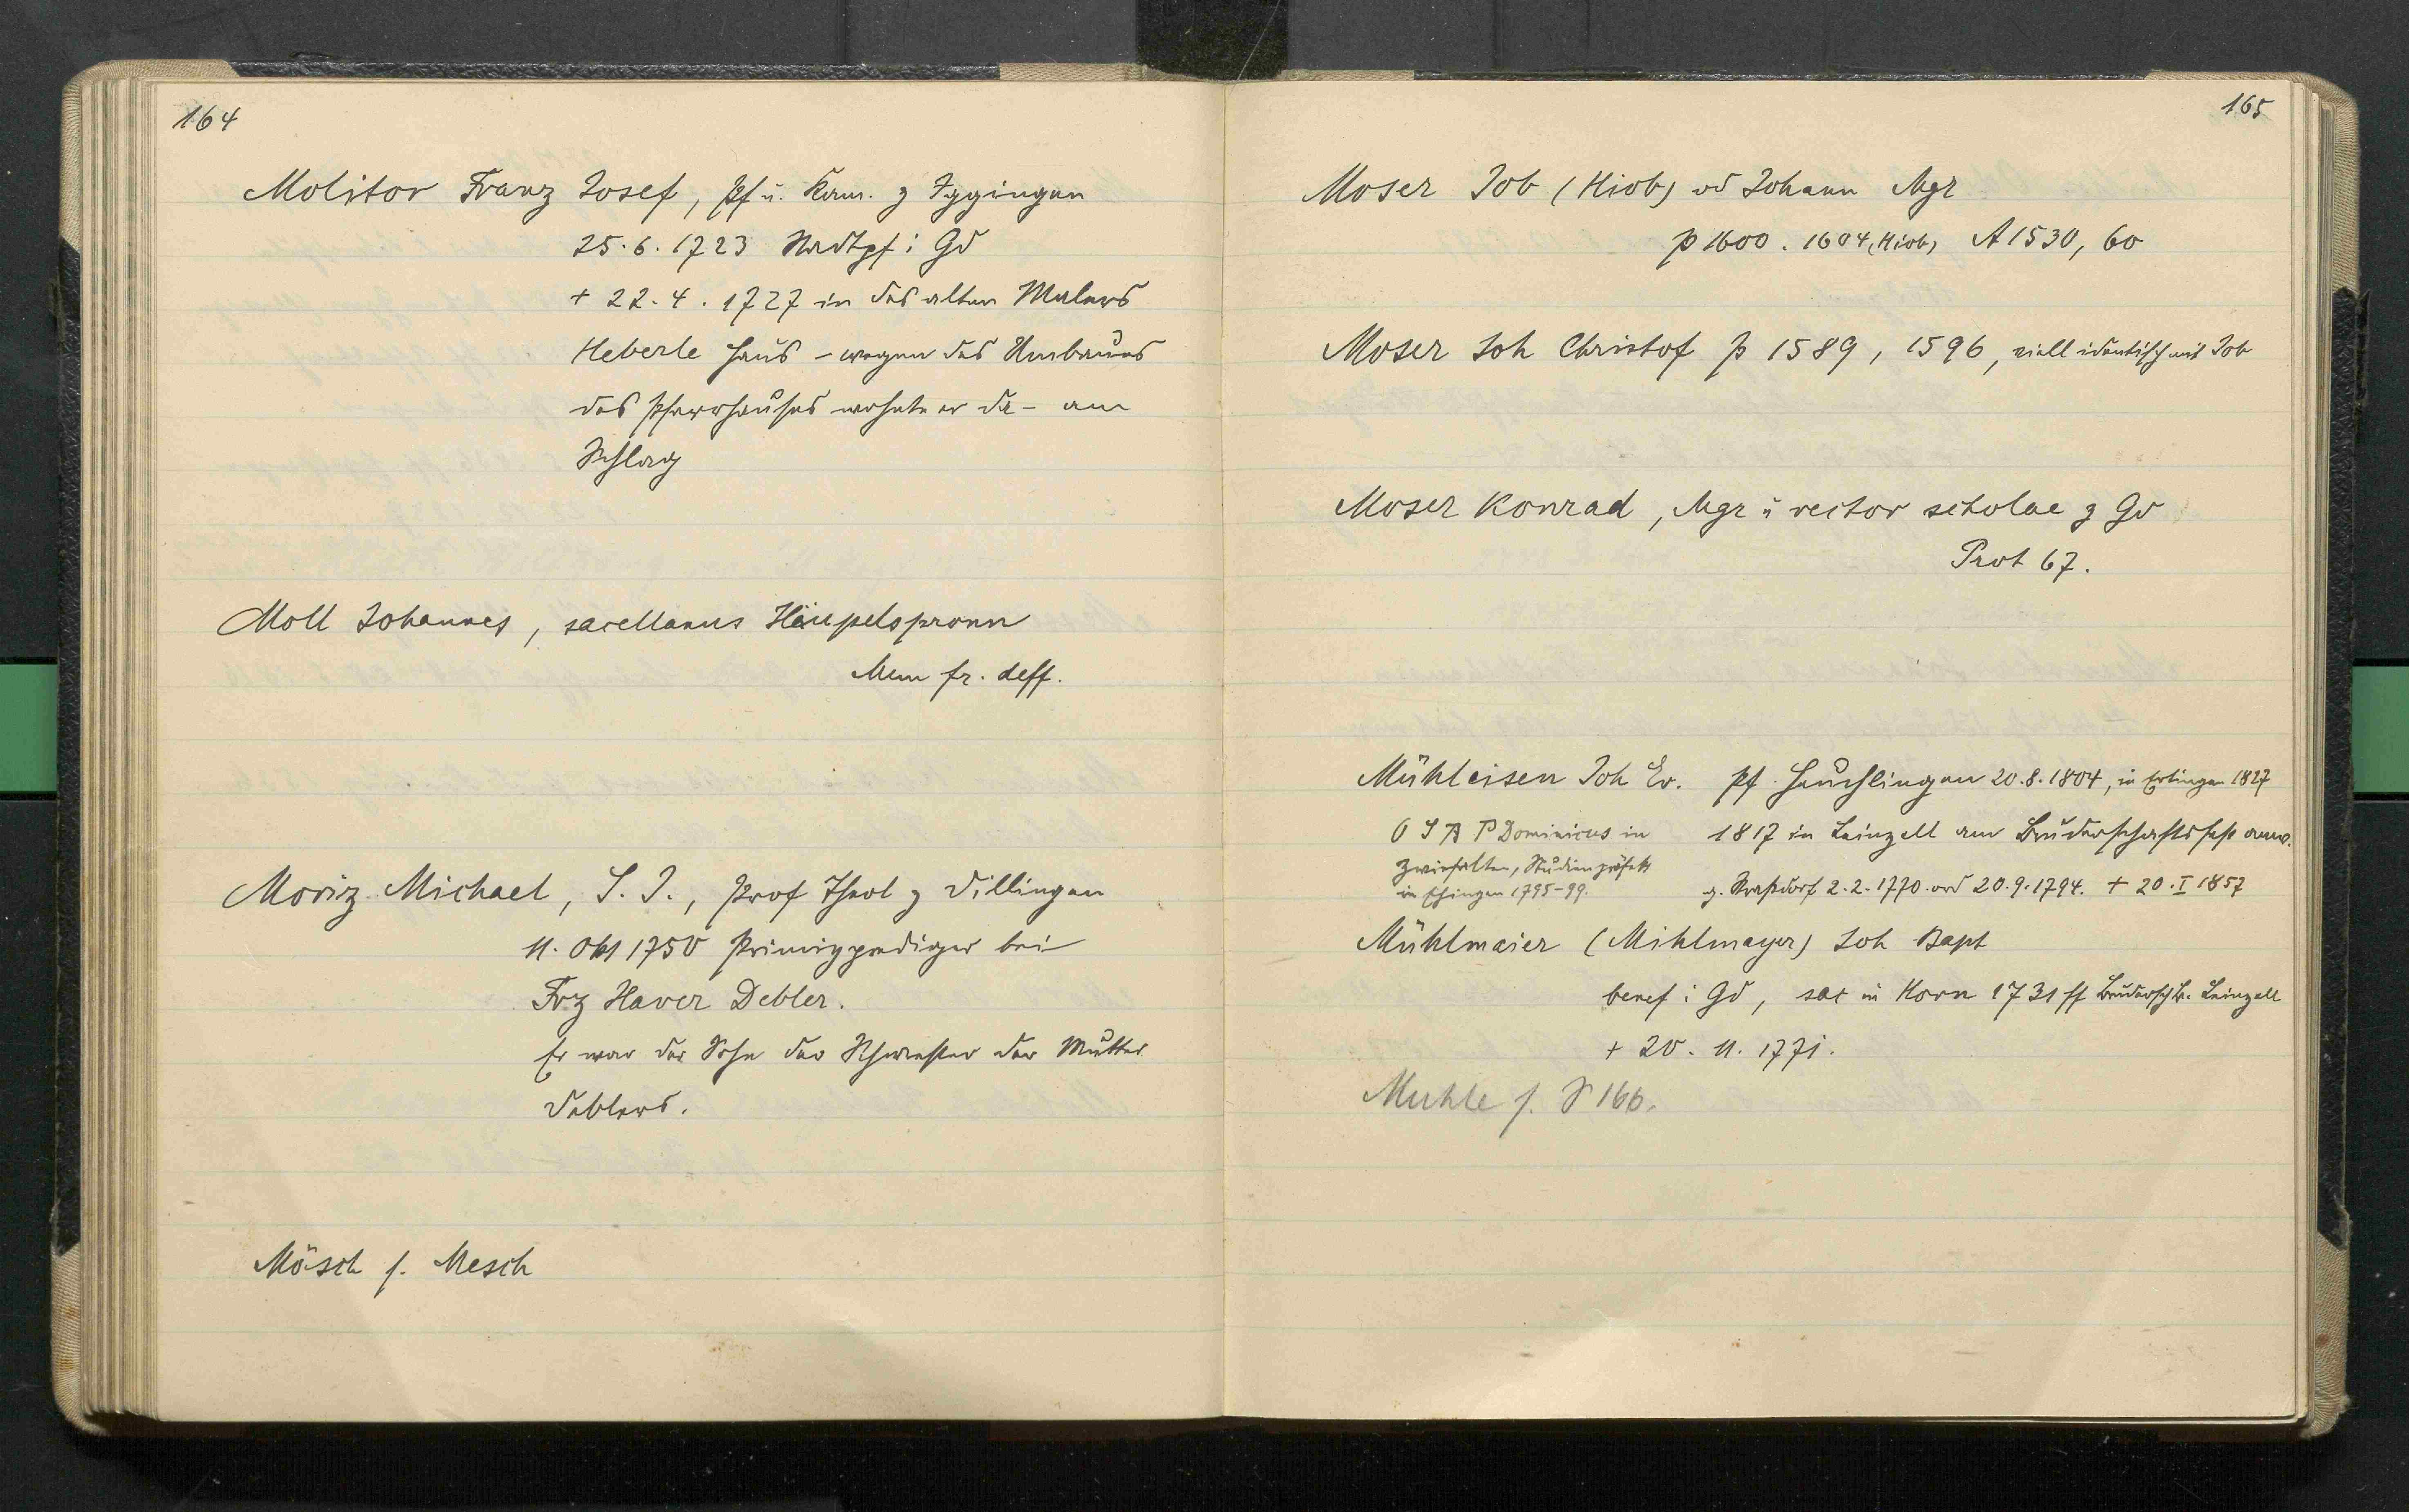 164
Molitor Franz Josef, Pf u. Kam. z Iggingen
25.6.1723 Stadtpf i Gd
+ 22.4.1727 in des alten Malers
Heberle Haus – wegen des Umbaues
des Pfarrhauses wohnte er da – am
Schlag
Moll Johannes, sacellanus Häupelspronn
Mem fr. deff.
Moriz Michael, S. J., Prof Theol z Dillingen
11. Okt 1750 Primizprediger bei
Frz Xaver Debler.
Er war der Sohn der Schwester der Mutter
Deblers.
Mösch s. Mesch
165
Moser Job (Hiob) od Johann Mgr
p 1600. 1604 (Hiob) A 1530, 60
Moser Joh Christof p 1589, 1596, viell identisch mit Job
Moser Konrad, Mgr u rector scholae z Gd
Prot 67.
Mühleisen Joh Ev. Pf Heuchlingen 20.8.1804, in Erbingen 1827
O S B P Dominicus in 1817 in Leinzell am Bruderschaftsfest anw.
Zwiefalten, Studienpräfekt
in Ehingen 1795-99. g. Straßdorf 2.2.1770. ord 20.9.1794. + 20.I 1857
Mühlmaier (Mihlmayer) Joh Bapt
benef i Gd, sac in Horn 1731 ff Bruderschb. Leinzell
+ 20. 11. 1771.
Muhle s. S 166.